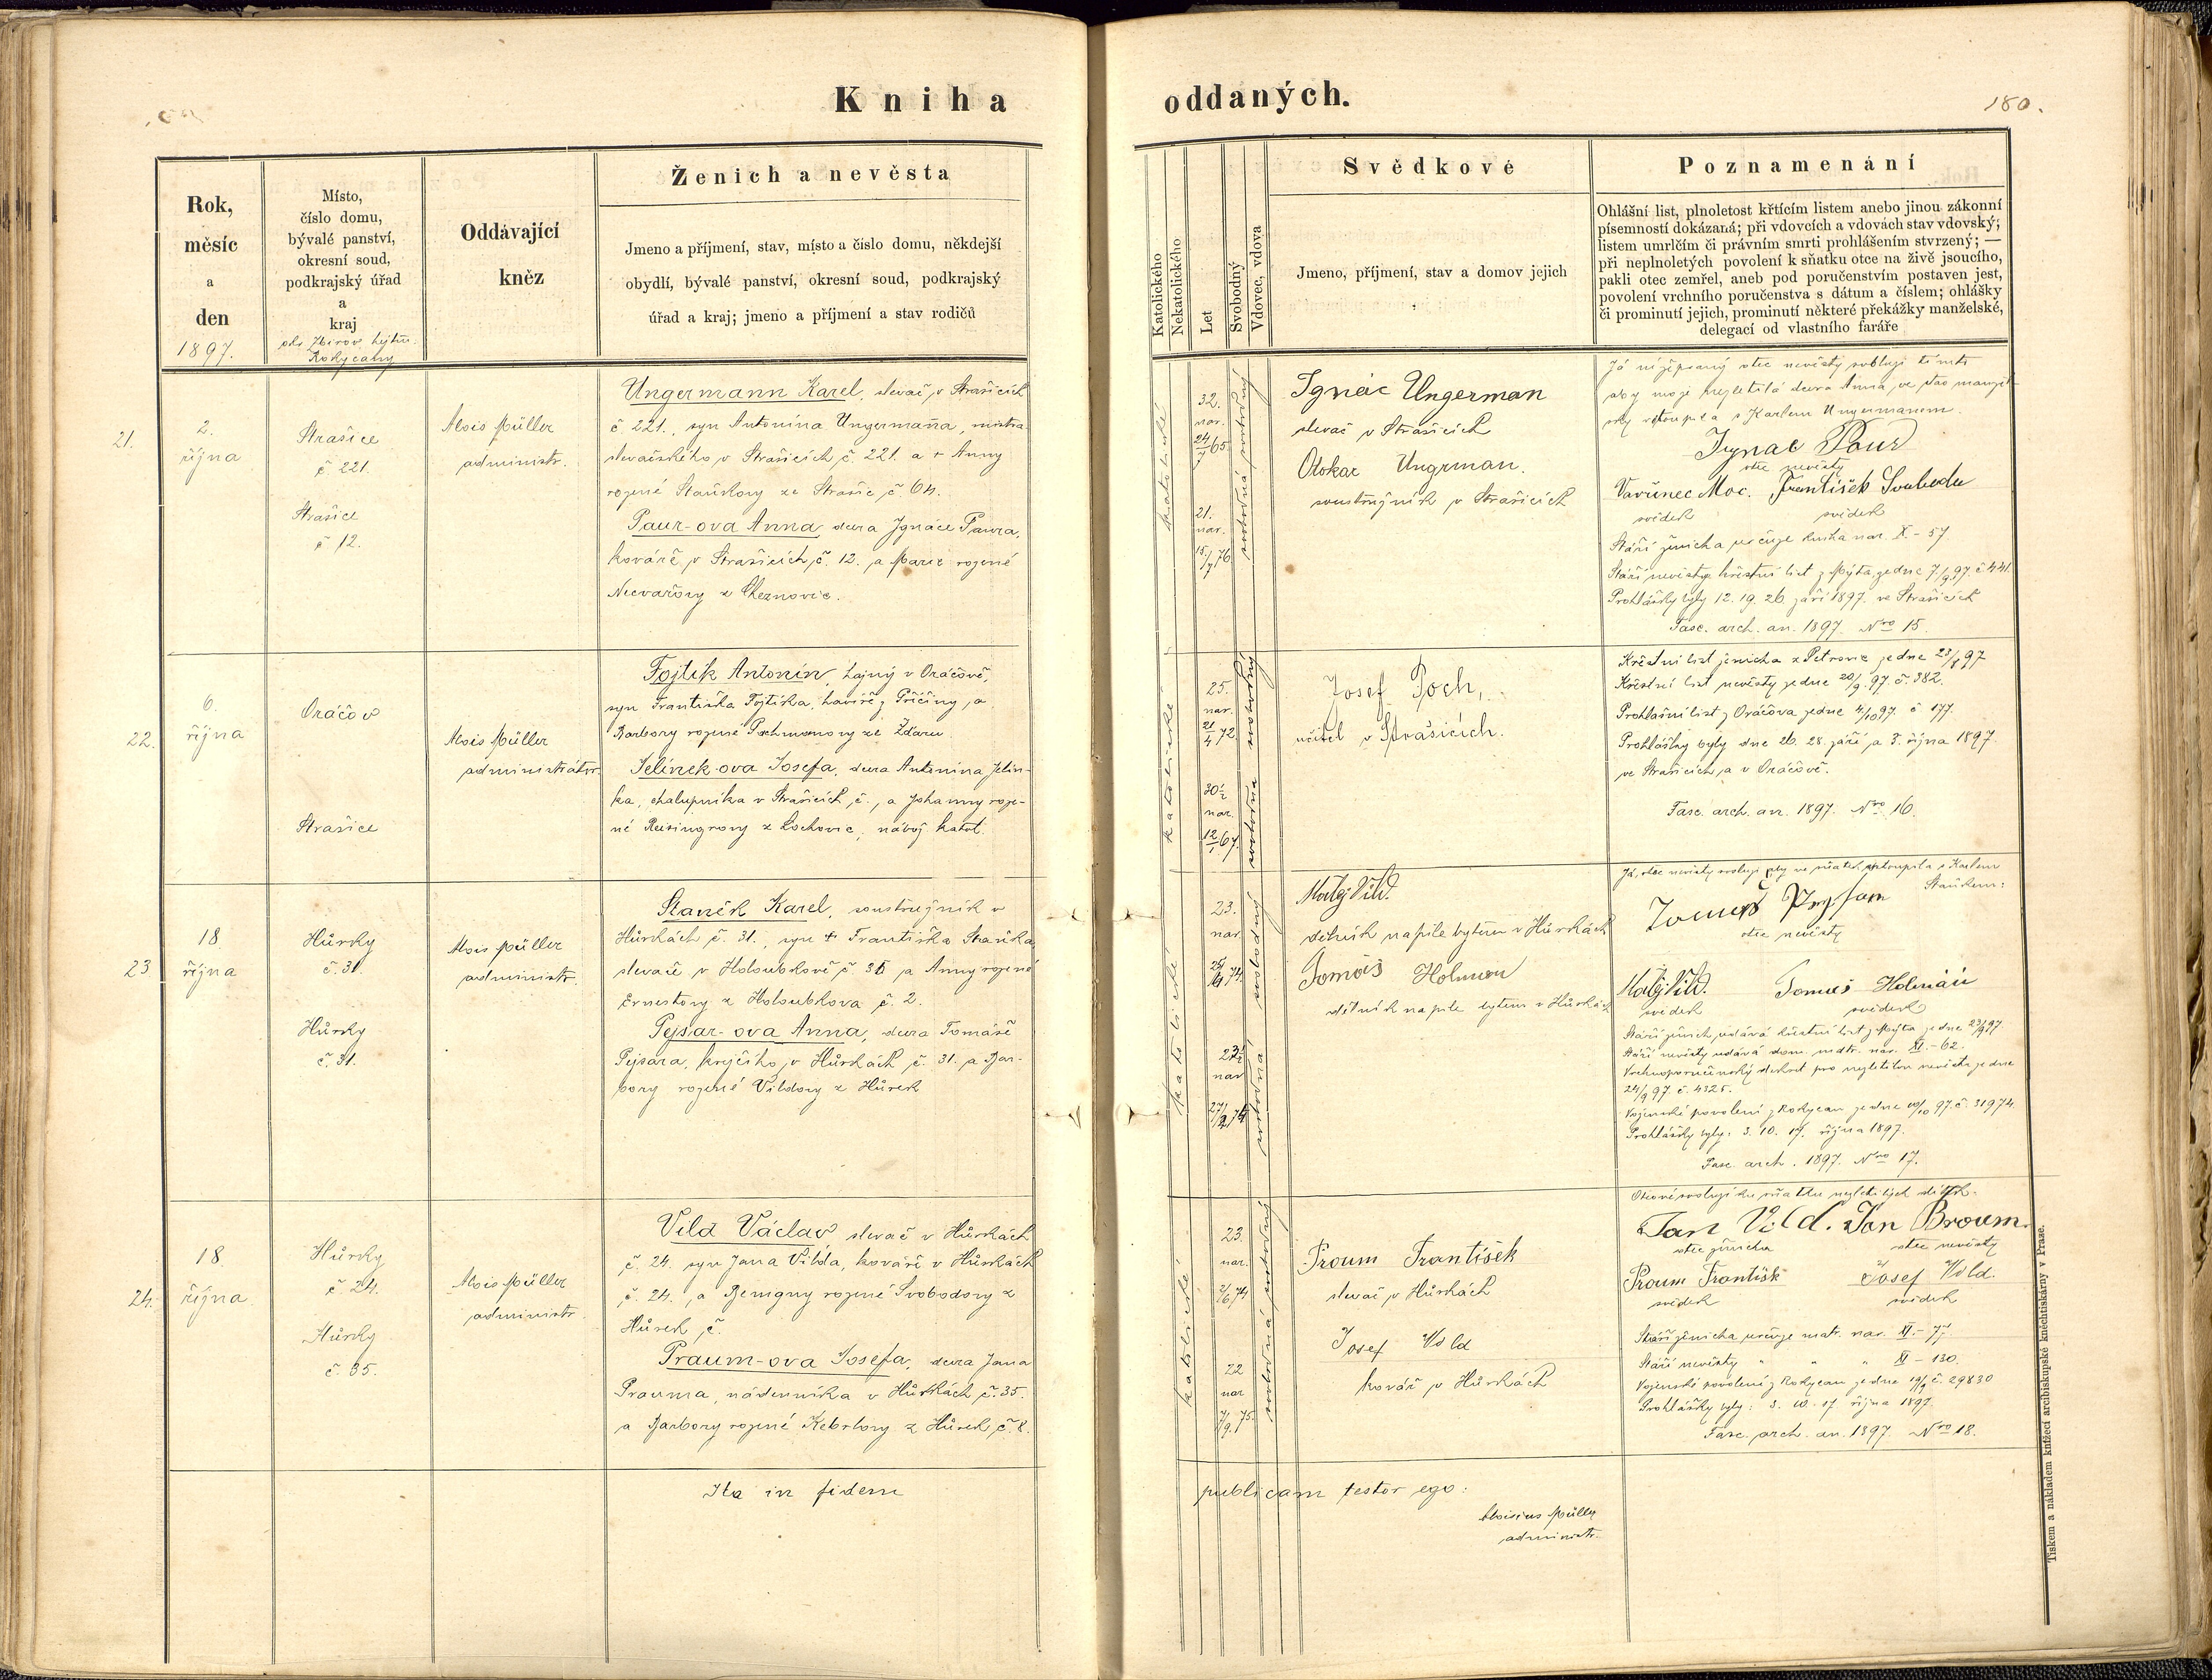 Kniha oddaných.
180.
Rok,
měsíc
a
den
1897.
Místo,
číslo domu,
bývalé panství,
okresní soud,
podkrajský úřad
a
kraj
Rokycany
Oddávající
kněz
Ženich a nevěsta
Jmeno a příjmení, stav, místo a číslo domu, někdejší
obydlí, bývalé panství, okresní soud, podkrajský
úřad a kraj; jmeno a příjmení a stav rodičů
Katolického
Nekatolického
Let
Svobodný
Vdovec, vdova
Svědkové
Jmeno, příjmení, stav a domov jejich
Poznamenání
Ohlášní list, plnoletost křtícím listem anebo jinou zákonní
písemností dokázaná; při vdovcích a vdovách stav vdovský;
listem umrlčím či právním smrti prohlášením stvrzený; —
při neplnoletých povolení k sňatku otce na živě jsoucího,
pakli otec zemřel, aneb pod poručenstvím postaven jest,
povolení vrchního poručenstva s dátum a číslem; ohlášky
či prominutí jejich, prominutí některé překážky manželské,
delegací od vlastního faráře
21.
2.
října
Strašice
č. 221.
Strašice
č. 12.
Alois Müller
administr.
Ungermann Karel, slevač v Strašicích
č. 221., syn Antonína Ungermanna, mistra
slevačského v Strašicích č. 221. a + Anny
rozené Staňkovy ze Strašic č. 64.
Paur-ova Anna, dcera Ignáce Paura,
kováře v Strašicích č. 12. a Marie rozené
z Cheznovic.
katolické
32.
nar.
24/7 65
21.
nar.
15/7 76
svobodný
svobodná
Ignác Ungerman
slevač v Strašicích
Otokar Ungrman.
soustružník v Strašicích
Já nížepsaný otec nevěsty svoluji tímto
aby moje nezletilá dcera Anna ve stav manžel-
ský vstoupila s Karlem Ungermanem.
Ignac Paur
otec nevěsty
Vavřinec Moc. František Svoboda
svědek svědek
Stáří ženicha určuje kniha nar. X. - 57.
Stáří nevěsty křestní list z Mýta ze dne 7/9 97. č 441.
Prohlášky byly 12. 19. 26. září 1897. ve Strašicích
Fasc. arch. an. 1897. Nro 15.
22.
6.
října
Oráčov
Strašice
Alois Müller
administrátor.
Fojtík Antonín, hajný v Oráčově,
syn Františka Fojtíka, havíře z Příčiny, a
Barbory rozené Pochmanovy ze Žďáru
Jelínek-ova Josefa, dcera Antonína Jelín-
ka, chalupníka v Strašicích č., a Johanny roze-
né Reisingrovy z Lochovic, nábož. katol.
katolické
25.
nar.
21/4 72.
30½
nar.
12/1 67.
svobodný
svobodna
Josef Poch,
učitel v Strašicích.
Křestní list ženicha z Petrovic ze dne 23/8 97
Křestní list nevěsty ze dne 20/9. 97. č. 382.
Prohlašní list z Oráčova ze dne 4/10 97. č 177.
Prohlášky byly dne 26. 28. září a 3. října 1897.
ve Strašicích a v Oráčově.
Fasc. arch. an. 1897. Nro 16.
23
18.
října
Hůrky
č. 31.
Hůrky
č. 31.
Alois Müller
administr.
Staněk Karel, soustružník v
Hůrkách č. 31., syn + Františka Staňka,
slevače v Holoubkově č. 31 a Anny rozené
Ernestovy z Holoubkova č. 2.
Pejsar-ova Anna, dcera Tomáše
Pejsara, krejčího, v Hůrkách č. 31. a Bar-
bory rozené Vildovy z Hůrek
katolické
23.
nar.
23½
nar
svobodný
svobodná
Matěj Vild.
dělník na pile bytem v Hůrkách
Tomáš Holman
dělník na pile bytem v Hůrkách
Já, otec nevěsty svoluji aby ve sňatek vstoupila s Karlem
Staňkem:
otec nevěsty
Matěj Vild. Tomáš Holmán
svědek svědek
Stáří ženich. udává křestní list z Mýta ze dne 23/9 97
Stáří nevěsty udává dom. matr. nar. XI. - 62.
Vrchnoporučenský dekret pro nezletilou nevěstu ze dne
24/9 97. č. 4325.
Vojenské povolení z Rokycan ze dne 10/10 97. č. 31974.
Prohlášky byly: 3. 10. 17. října 1897.
Fasc. arch. 1897. Nro 17.
24.
18.
října
Hůrky
č. 24.
Hůrky
č. 35.
Alois Müller
administr.
Vild Václav, slevač v Hůrkách
č. 24. syn Jana Vilda, kováře v Hůrkách
č. 24., a Benigny rozené Svobodovy z
Hůrek č.
Praum-ova Josefa, dcera Jana
Prauma, nádenníka v Hůrkách č. 35.
a Barbory rozené Kebrlovy z Hůrek č. 8.
katolické
23.
nar.
2/6 74
22
nar
7/9. 75.
svobodný
svobodná
Proum František
slevač v Hůrkách
Josef Vild
kovář v Hůrkách
Otcové svolují ku sňatku nezletilých dítek.
Jan Vild. Jan Broum.
otec ženicha otec nevěsty
Proum František Josef Vild.
svědek svědek
Stáří ženicha určuje matr. nar. XI. - 77.
Stáří nevěsty " " " XI - 130.
Vojenské povolení z Rokycan ze dne 19/9 č. 29830
Prohlášky byly: 3. 10. 17 října 1897.
Fasc. arch. an. 1897. Nro 18.
Ita in fidem publicam testor ego:
Aloisius Müller
administr.
Tiskem a nákladem knížecí arcibiskupské knihtiskárny v Praze.